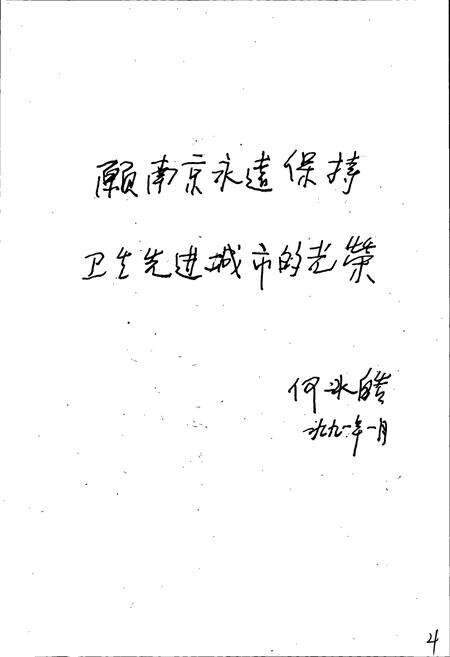 願南京永遠保持
卫生先进城市的光榮
何冰皓
一九九一年一月
4